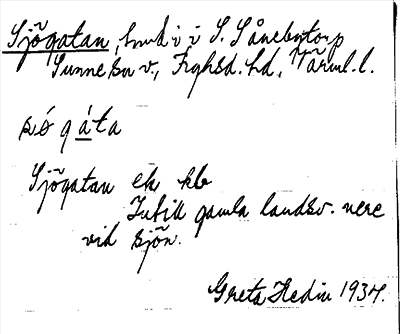 Sjögatan, bruk i i S. Sånebytorp
Sunne sn v., Frykhsd. hd, Värml. l.
sǿ gáta
Sjögatan ek kb
Intill gamla landsv. nere
vid sjön.
Greta Hedin 1934.